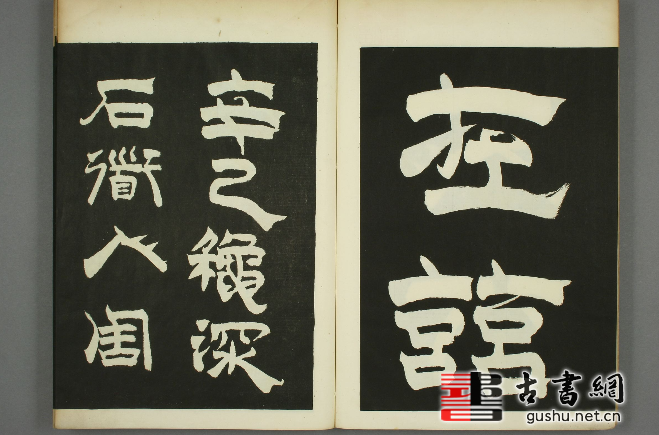 在
辛巳穐深
石衟人周
古書網
gushu.net.cn